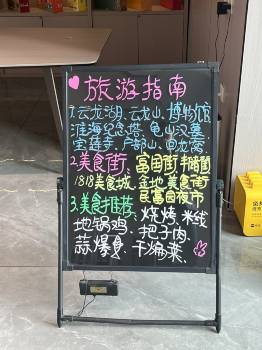 旅游指南
1.云龙湖、云龙山、博物馆
淮海纪念塔、龟山汉墓
宝莲寺、户部山、回龙窝
2.美食街、富国街
1818美食城、金地美食街
民富园夜市
3.美食推荐、烧烤、米线
地锅鸡、把子肉、